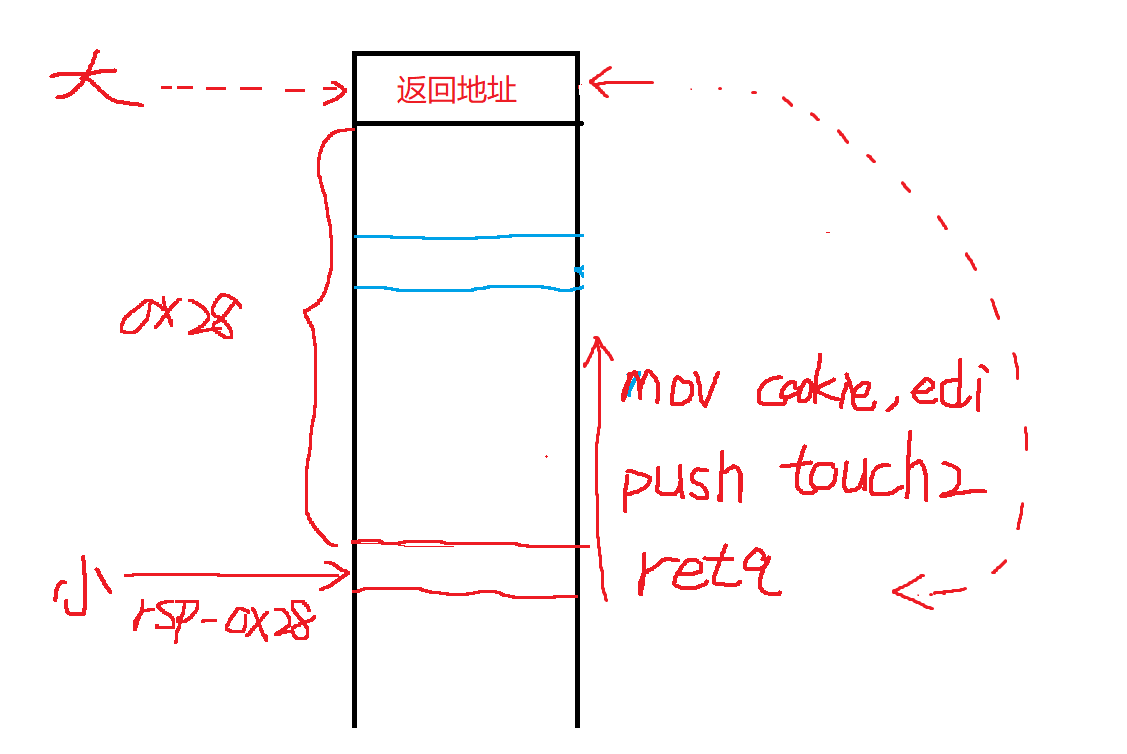 大
返回地址
0x28
mov cookie, edi
push touch2
retq
小
rsp-0x28